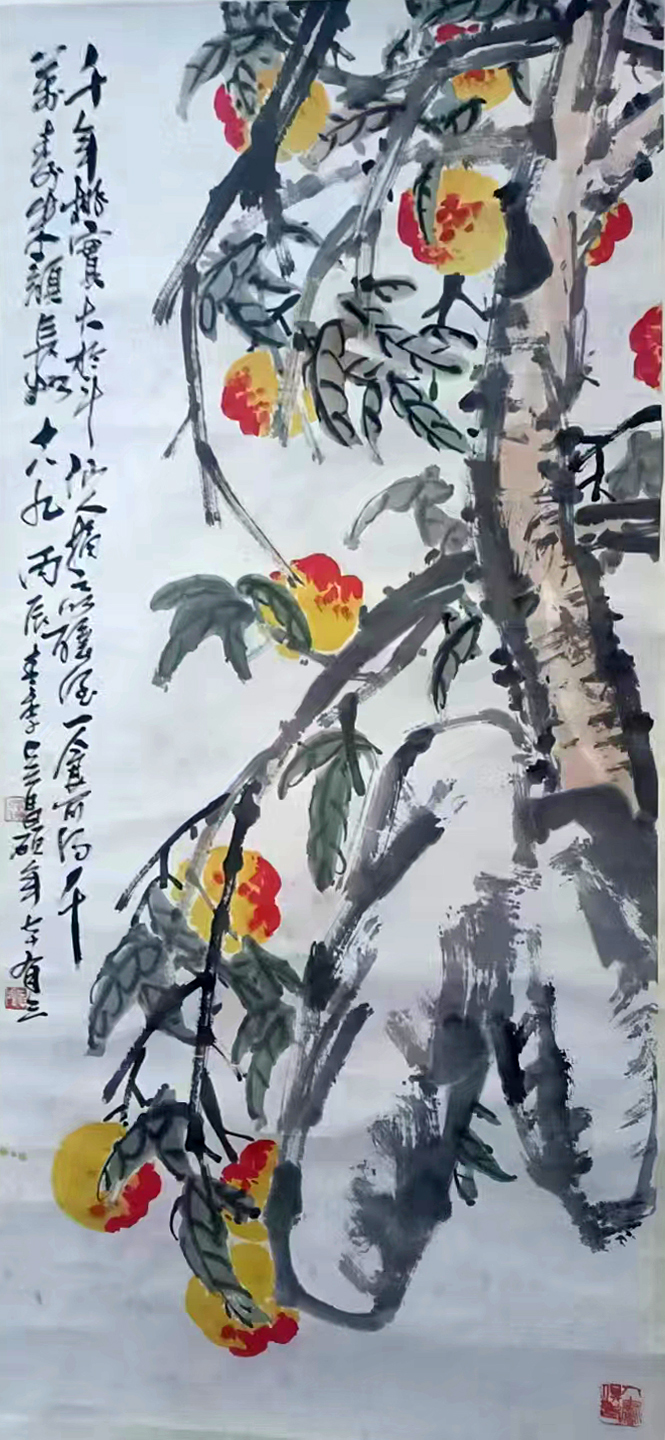 千年桃實大於斗仙人摘之以釀酒一食可得千
萬壽朱顏長如十八九丙辰春季吳昌碩年七十有三